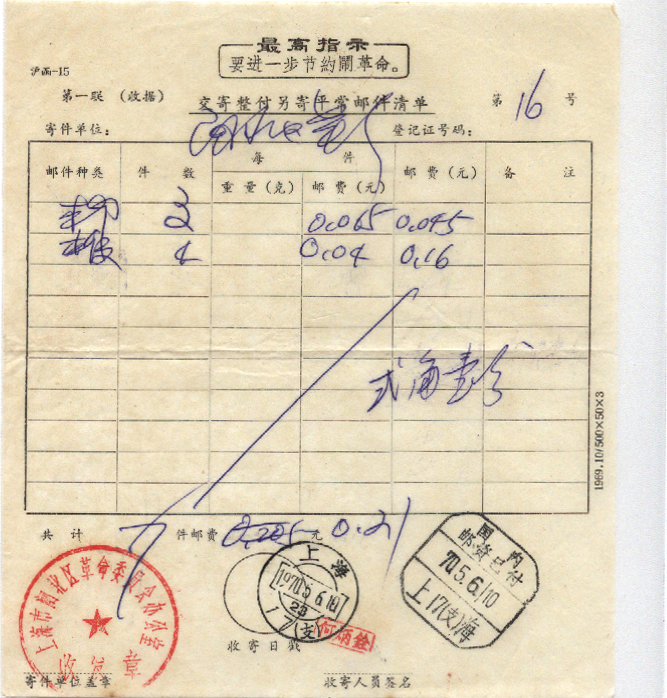 最高指示
要进一步节約鬧革命。
沪函-15
第一联 (收据) 交寄整付另寄平常邮件清单 第 16 号
寄件单位: 登记证号码:
邮件种类 件数 每件 重量(克) 邮费(元) 邮费(元) 备注
3 0.065 0.045
4 0.04 0.16
弍角壹分
1969.10/500×50×3
共计 件邮费 0.205 元 0.21
国内
邮资已付
70.5.6.10
上17(支)海
上海
1970.5.6.10
23
17(支)
何炳銓
上海市闸北区革命委员会办公室
收发章
收寄日戳
寄件单位盖章 收寄人员签名